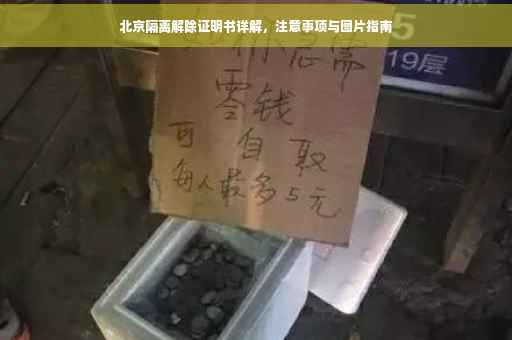 北京隔离解除证明书详解，注意事项与图片指南
你急需
零钱
可自取
每人最多5元
5
19层